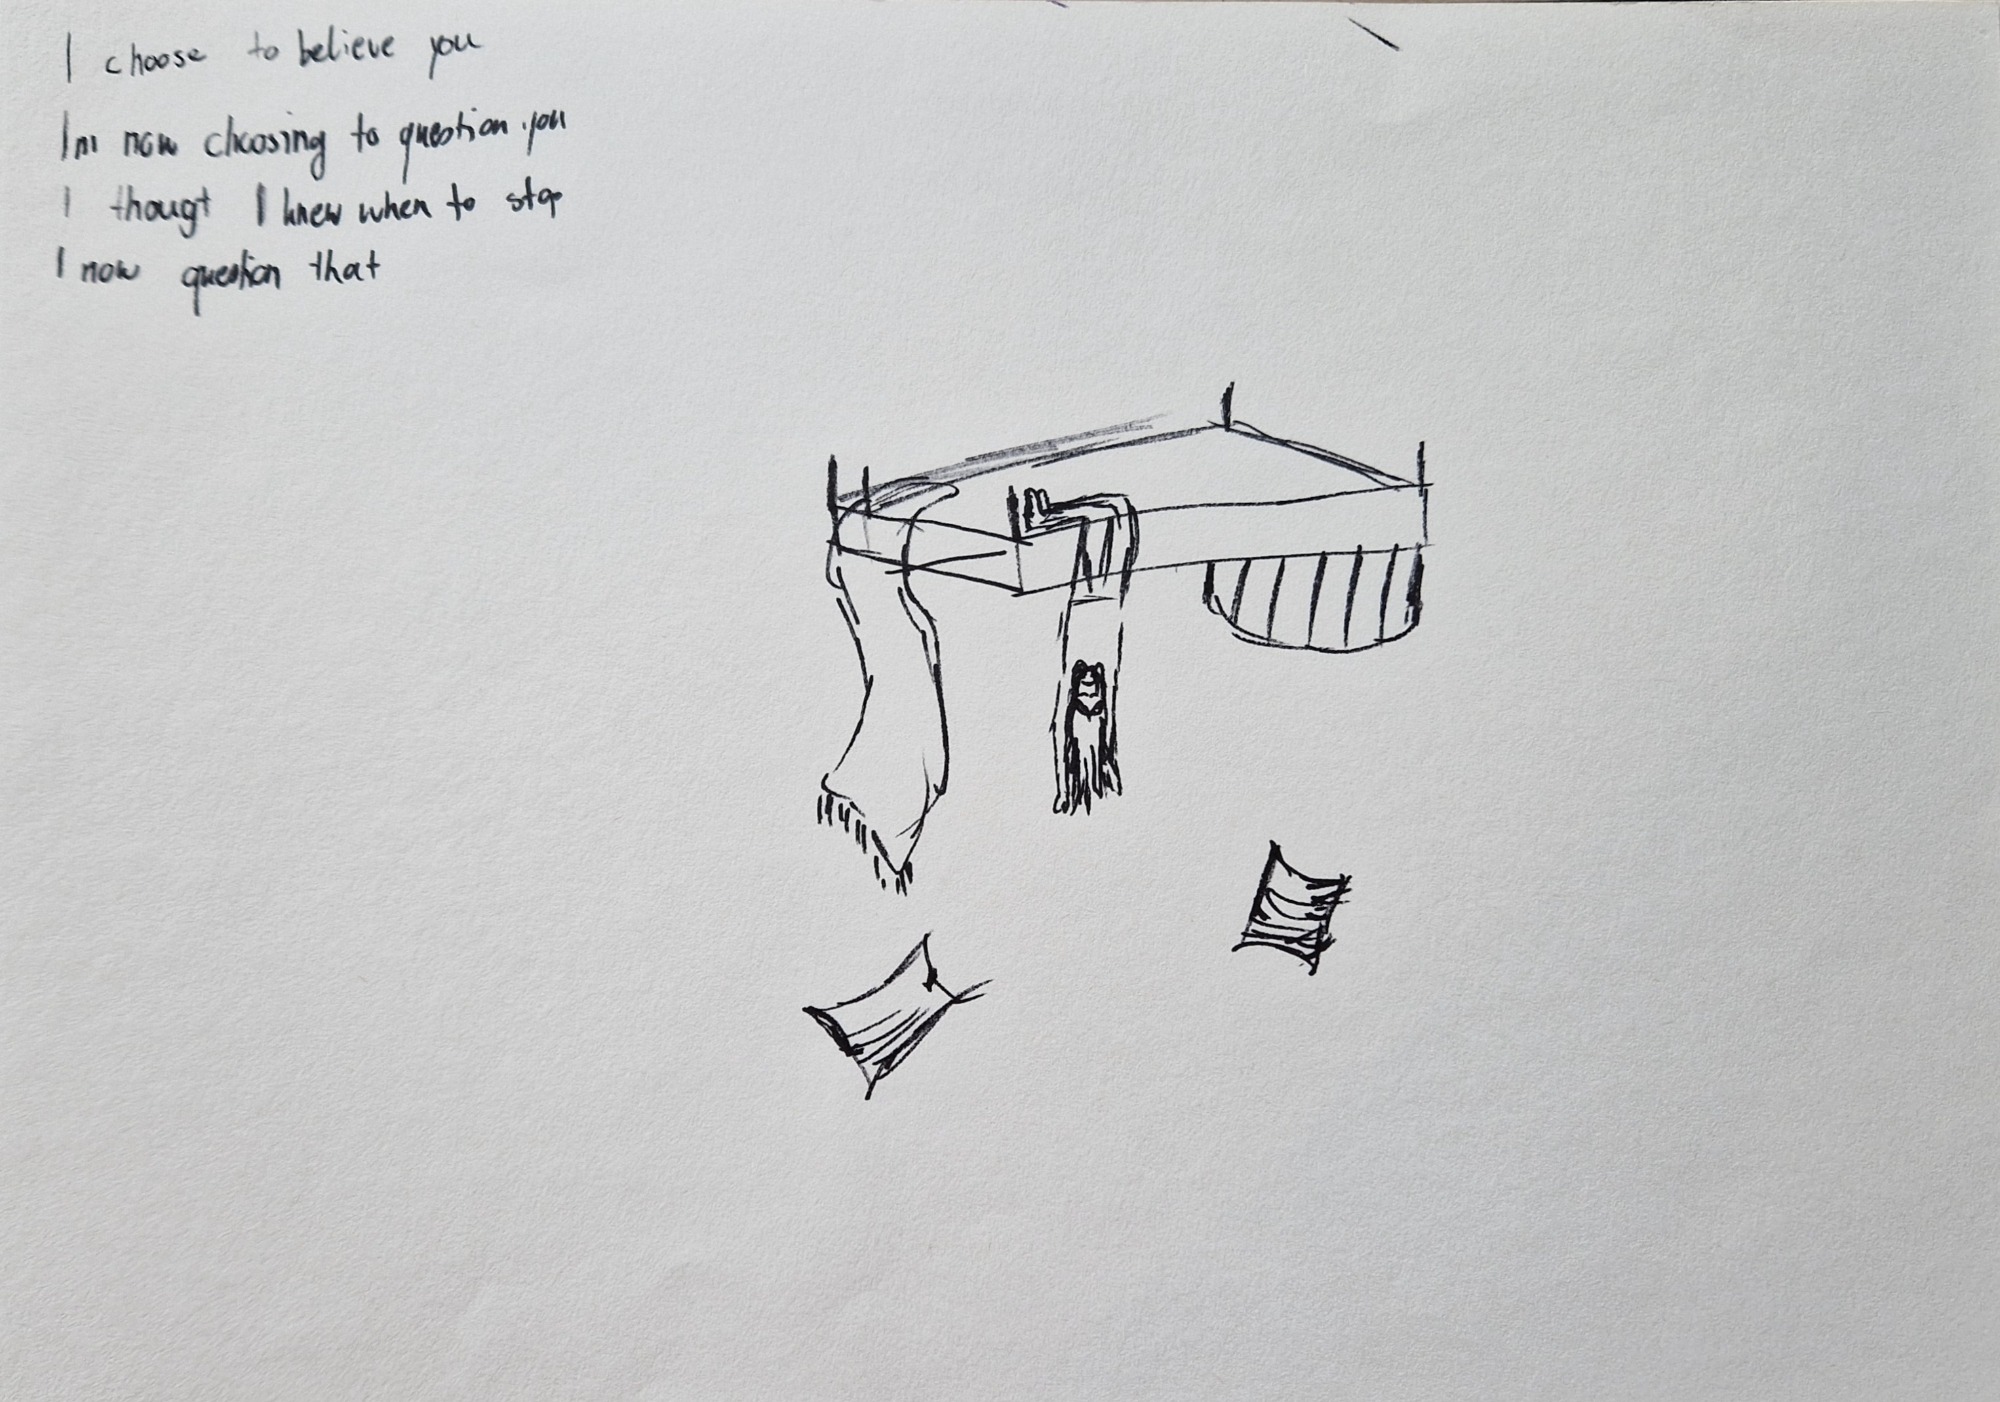 I choose to believe you
Im now choosing to question you
I thougt I knew when to stop
I now question that